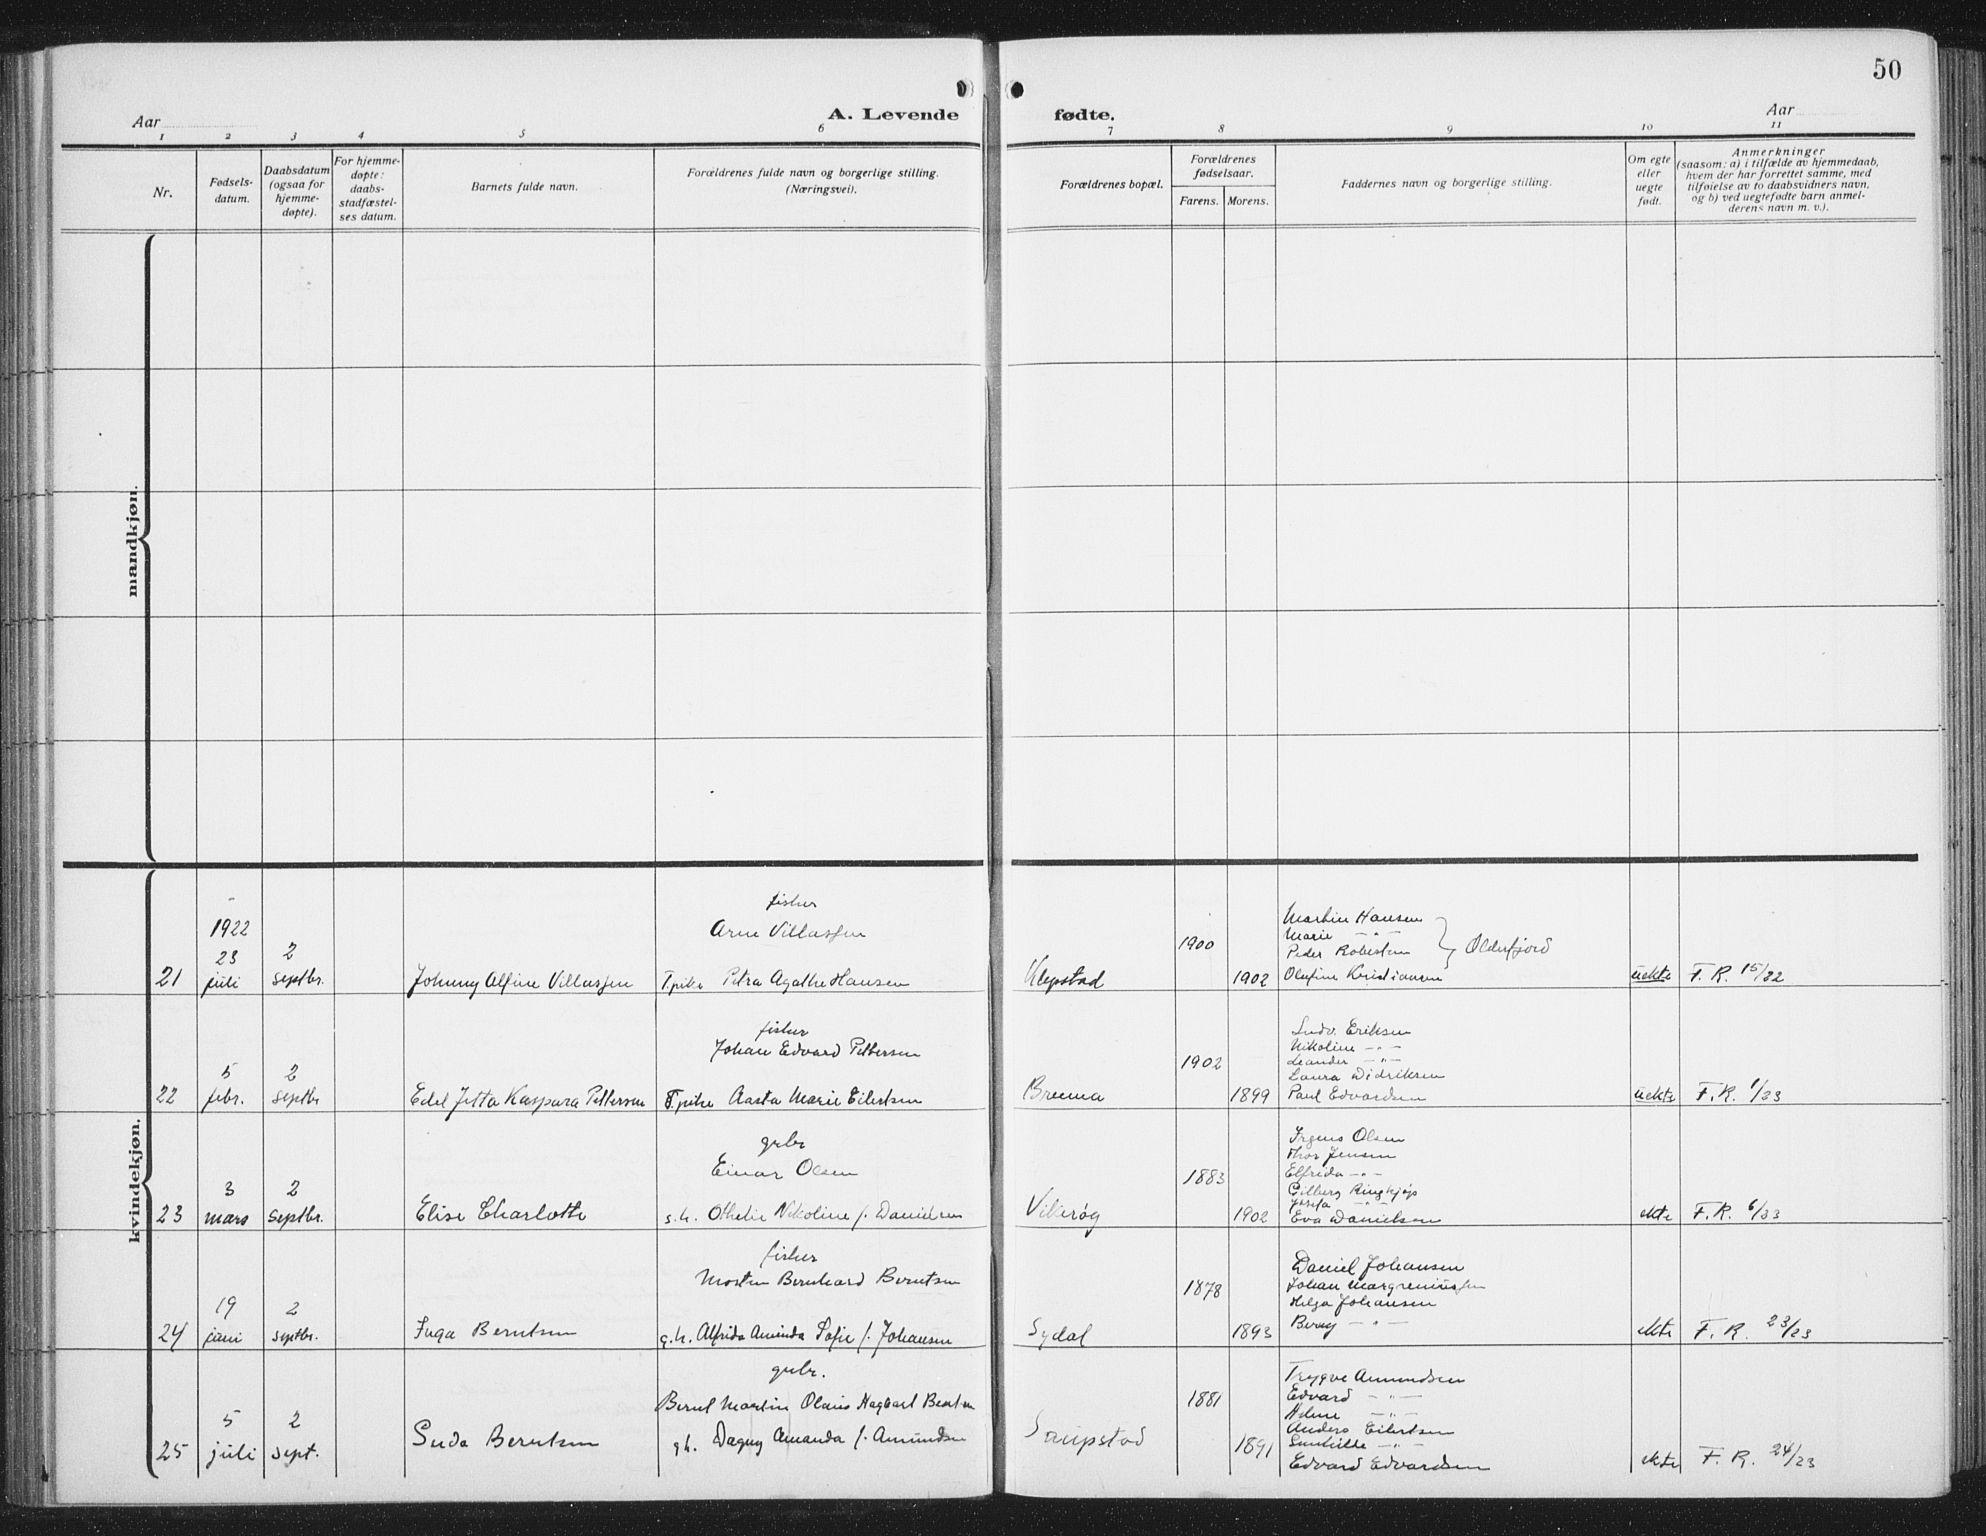 50
A. Levende fødte.
Aar
Aar
1 2 3 4 5 6 7 8 9 10 11
Nr.
Fødsels-
datum.
Daabsdatum
(ogsaa for
hjemme-
døpte).
For hjemme-
døpte:
daabs-
stadfæstel-
ses datum.
Barnets fulde navn.
Forældrenes fulde navn og borgerlige stilling.
(Næringsvei).
Forældrenes bopæl.
Forældrenes
fødselsaar.
Farens. Morens.
Faddernes navn og borgerlige stilling.
Om egte
eller
uegte
født.
Anmerkninger
(saasom: a) i tilfælde av hjemmedaab,
hvem der har forrettet samme, med
tilføielse av to daabsvidners navn,
og b) ved uegtefødte barn anmel-
derens navn m. v.).
mandkjøn.
kvindekjøn.
21
1922
23
juli
2
septbr.
Johnny Alfine Villassen
fisker
Arne Villassen
T.pike Petra Agathe Hansen
Klepstad
1900
1902
Martin Hansen
Marie -"-
Peder Robertsen
Olufine Kristiansen
Olderfjord
uekte
F. R. 15/22
22
5
febr.
2
septbr
Edel Jetta Kaspara Pettersen
fisker
Johan Edvard Pettersen
T.pike Aasta Marie Eilertsen
Brenna
1902
1899
Ludv. Eriksen
Nikoline -"-
Leander -"-
Laura Didriksen
Paul Edvardsen
uekte
F. R. 1/23
23
3
mars
2
septbr.
Elise Charlotte
grbr
Einar Olsen
g.h. Othelie Nikoline f. Danielsen
Vikrøg
1883
1902
Irgens Olsen
Thor Jensen
Elfrida -"-
Gilberg
Eva Danielsen
ekte
F. R. 6/23
24
19
juni
2
septbr.
Inga Berntsen
fisker
Morten Bernhard Berntsen
g.h. Alfrida Aminda Sofie f. Johansen
Sydal
1878
1893
Daniel Johansen
Johan
Helga Johansen
Berny -"-
ekte
F. R. 23/23
25
5
juli
2
sept.
Berntsen
grbr.
Bernt Martin Olaus Hagbart Berntsen
gh. Dagny Amanda f. Amundsen
Saupstad
1881
1891
Trygve Amundsen
Edvard -"-
-"-
Anders Eilertsen
-"-
Edvard Edvardsen
ekte
F. R. 24/23